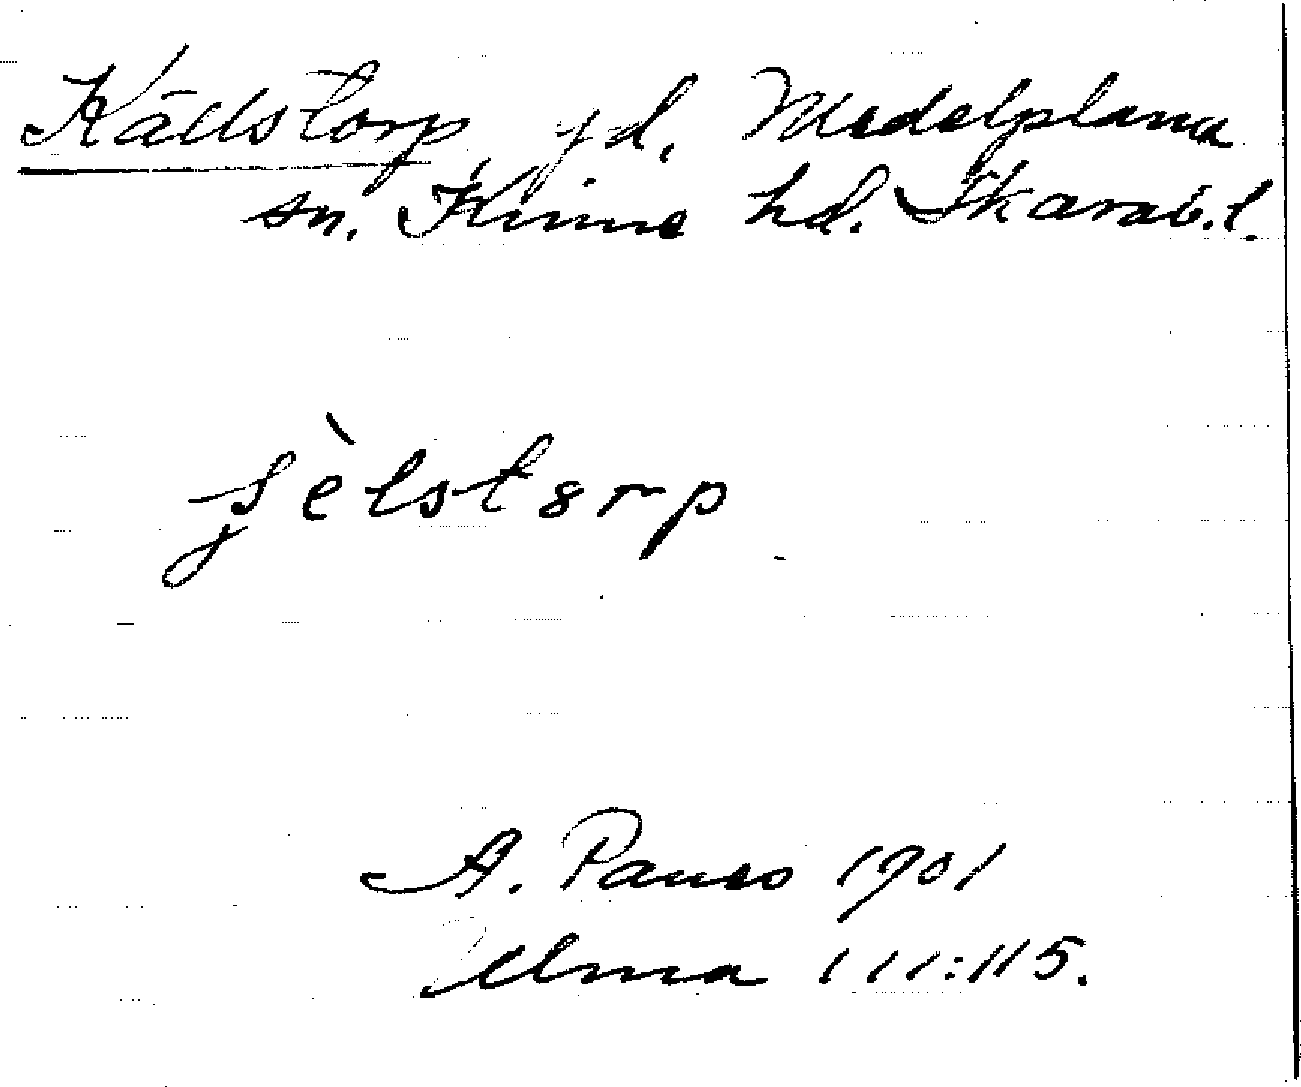 Källstorp gd, Medelplana
sn. Kinne hd. Skarab.l.
A. Pauss 1901
Ulma 111:115.